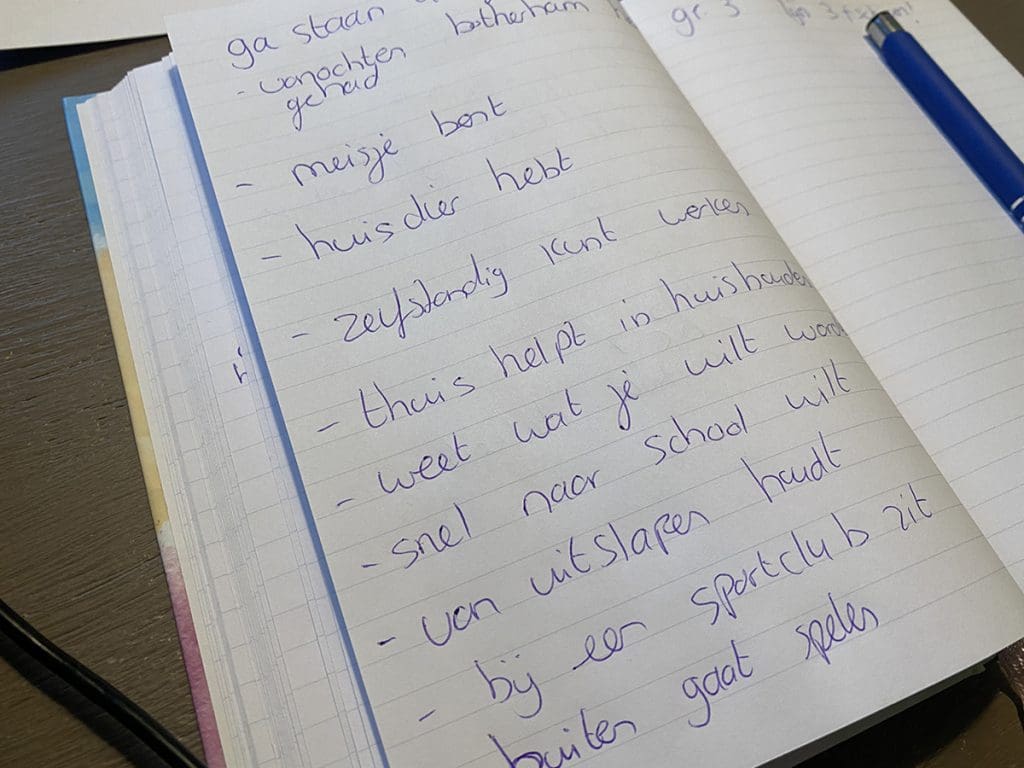 ga staan
- vanochten boterham
gehad
- meisje bent
- huisdier hebt
- zelfstandig kunt werken
- thuis helpt in huishouden
- weet wat je wilt
- snel naar school wilt
- van uitslapen houdt
- bij een sportclub zit
buiten gaat spelen
gr. 3